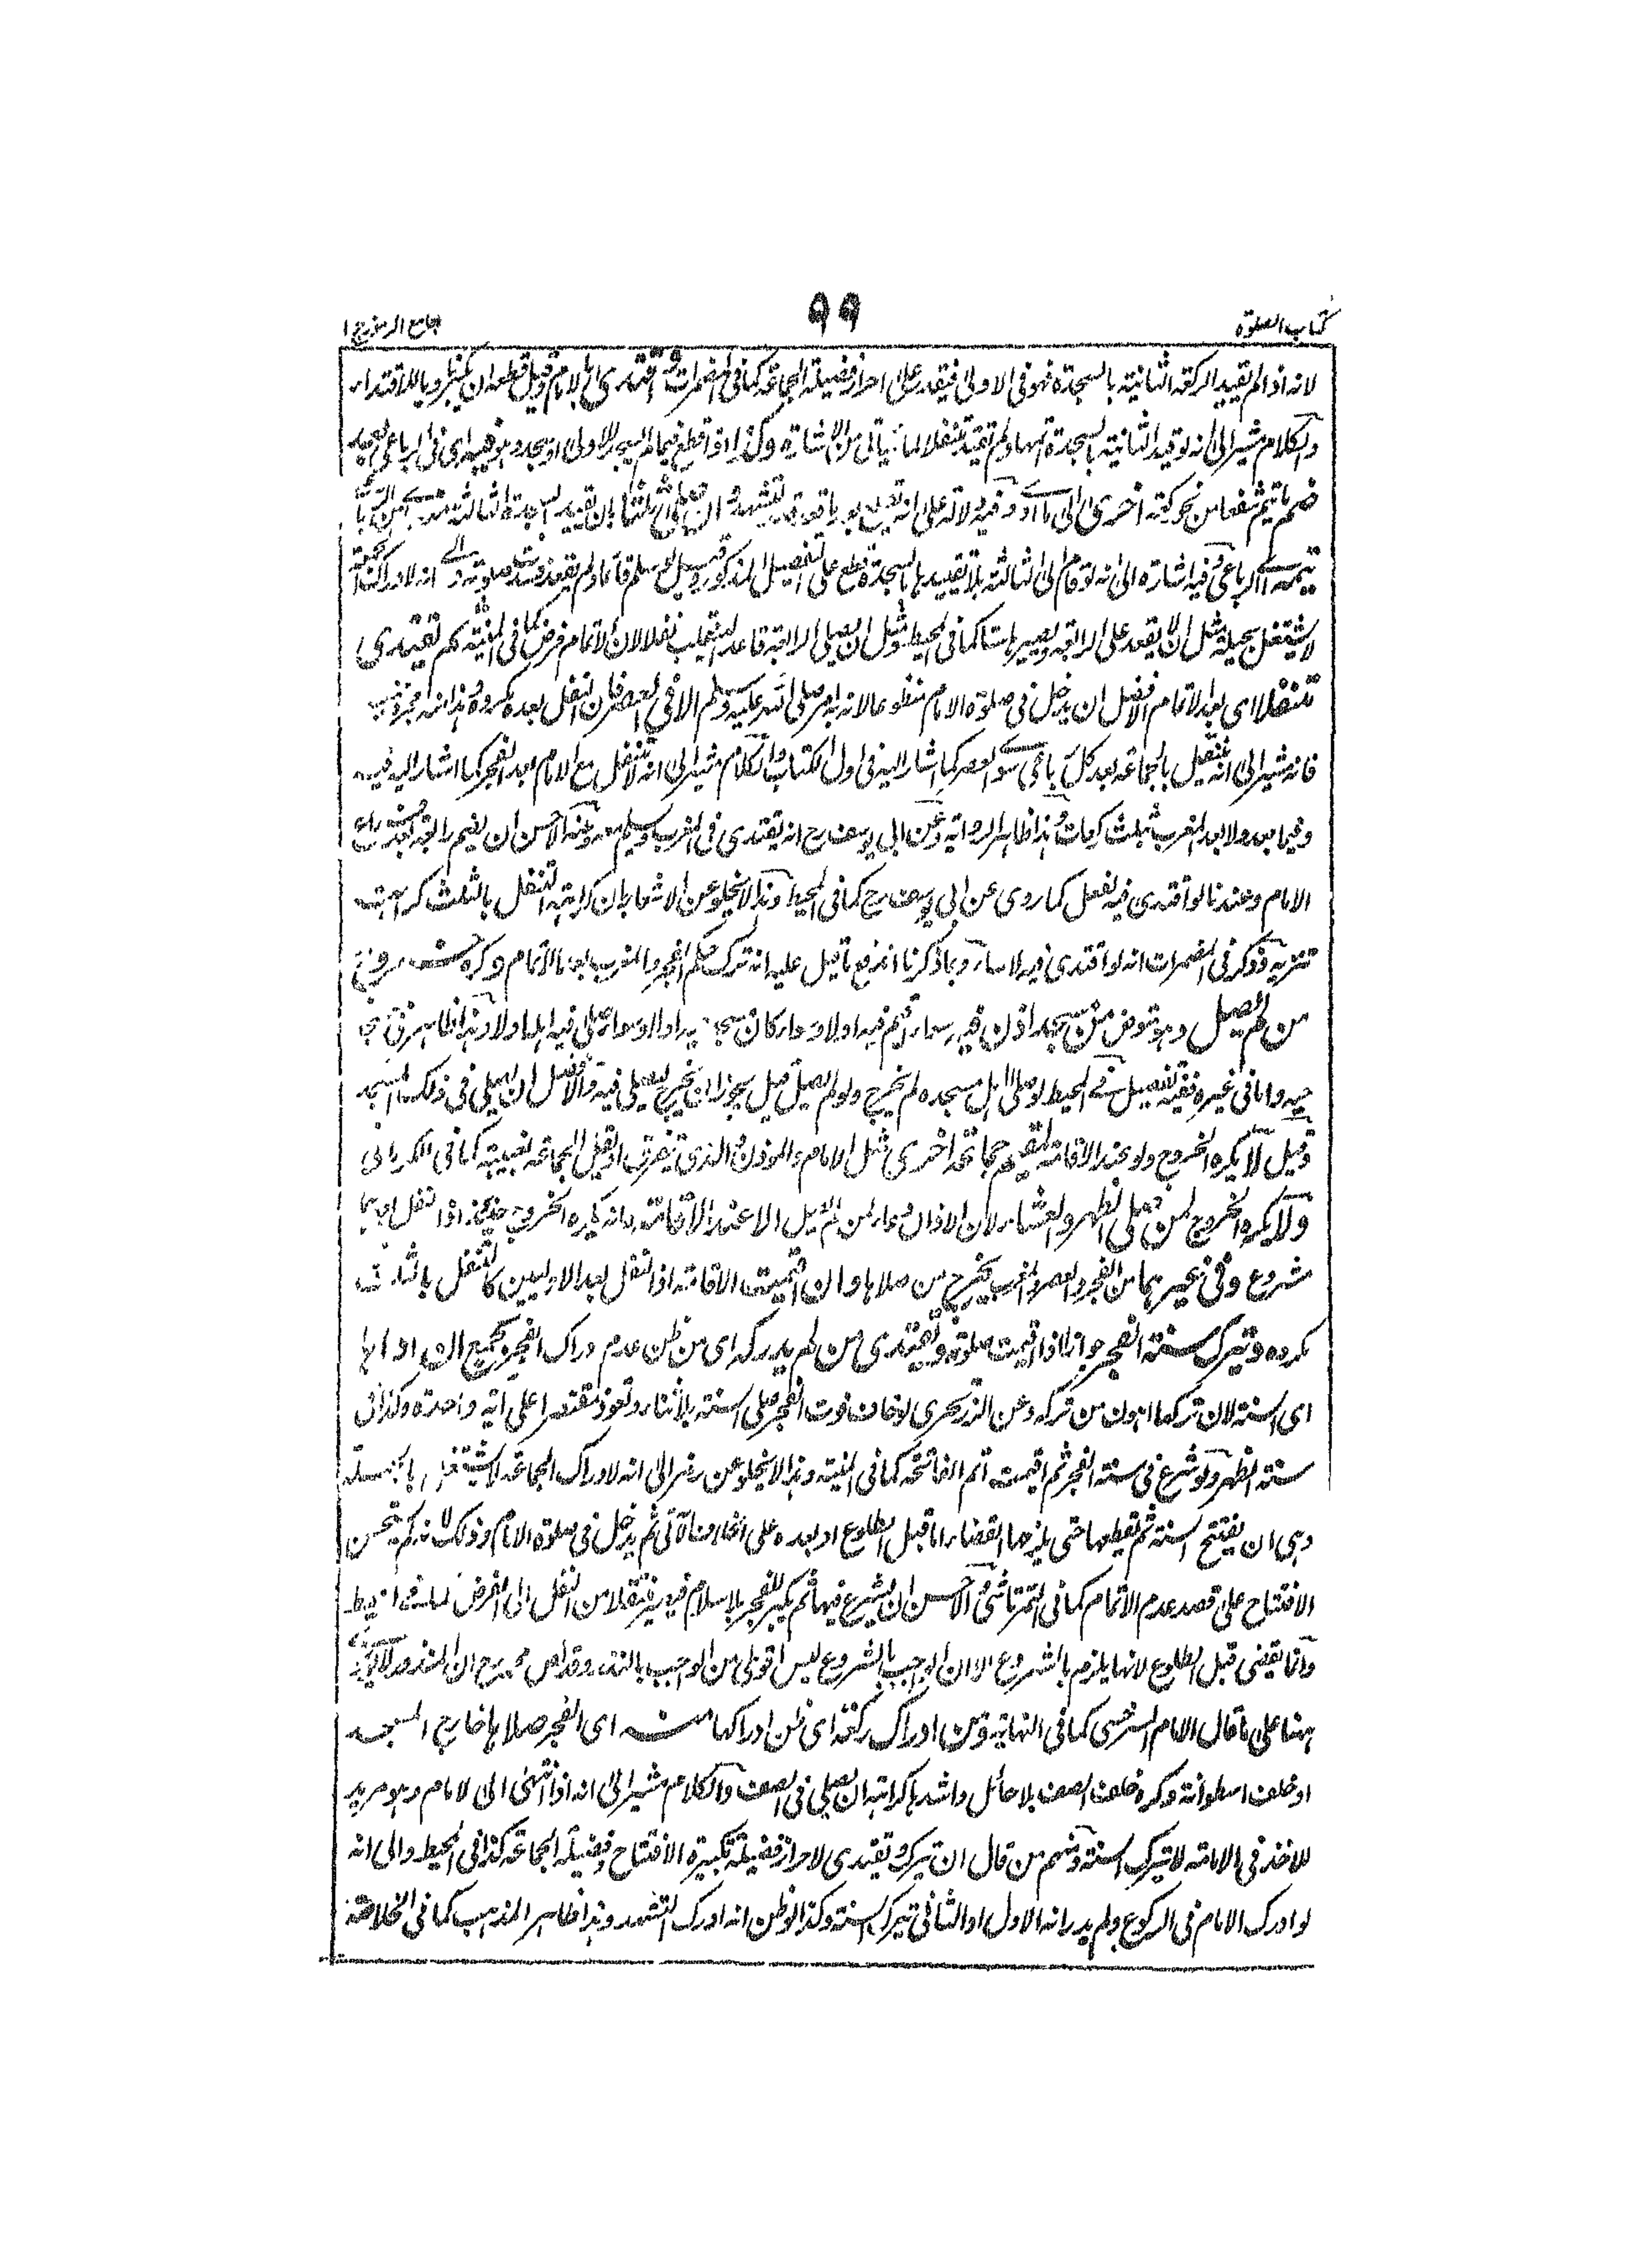 كتاب الصلوة
٩٩
جامع الرموز ج ١
لانه اذا لم تقييد الركعة الثانية بالسجدة فهو فى الاولى فيقدر على احراز فضيلة الجماعة كما فى المضمرات ثم اقتدى اى بالامام وقيل قطعه ان يكبر ويا للاقتداء
والكلام مشير الى انه لو قيد الثانية بالسجدة اتمها ولم يقتد متنفلا لما يأتى من الاشارة وكذا اذا قطع فيما لم يسجد للاولى او سجد وهو فيه اى فى الرباعى بعد
ضم ما يتم شفعا من نحو ركعة اخرى الى ما ادى وفيه دلالة على انه قدر التشهد وان صلى ثلثا بان تقييد سجدة الثالثة منه اى من
يتمه اى الرباعى وفيه اشارة الى انه لو قام الى الثالثة بلا تقييدها بالسجدة قطع على التفصيل المذكور وقيل لو سلم قائما ولم يقعد فسدت صلوته والى انه لادراك الجماعة
لا يشتغل بحيلة مثل ان لا يقعد على الرابعة ويصيرها ستا كما فى المحيط ومثل ان يصلى الرابعة قاعدا لينقلب نفلا لان الاتمام فرض كما فى المنية ثم يقتدى
متنفلا اى بعد الاتمام الافضل ان يدخل فى صلوة الامام متطوعا لانه به امر صلى الله عليه وسلم الا فى العصر فان النفل بعده مكروه وهذا انه
فانه مشير الى انه يتنفل بالجماعة بعد كل رباعى سوى العصر كما اشار اليه فى اول الكتاب والكلام مشير الى انه لا يتنفل مع الامام بعد الفجر كما اشار اليه فيه
وفيما بعد ولا بعد المغرب بثلث ركعات وهذا ظاهر الرواية وعن ابى يوسف رح انه يقتدى فى المغرب ويسلم معه وعنه الاحسن ان يضم رابعة بعد فراغ
الامام وعندنا لو اقتدى فيه لفعل كما روى عن ابى يوسف رح كما فى المحيط وهذا لا يخلو عن الاشعار بان كراهية التنفل بالثلث كراهية
تنزيه وذكر فى المضمرات انه لو اقتدى فيه لاساء وبما ذكرنا اندفع ما قيل عليه انه ترك حكم الفجر والمغرب بعد الاتمام وكره خروج
من لم يصل وهو متوض من مسجد اذن فيه سواء اقيم فيه اولا وسواء كان مسجد او لا وسواء صلى فيه اهله اولا وهذا ظاهر فى
حيه واما فى غيره ففيه تفصيل فى المحيط لو صلى اهل مسجده لم يخرج ولو لم يصل قيل يجوز ان يخرج ليصلى فيه والافضل ان يصلى فى ذلك المسجد
وقيل لا يكره الخروج ولو عند الاقامة لمقيم جماعة اخرى مثل الامام والموذن الذى تتفرق او تقل الجماعة بغيبته كما فى الكرمانى
ولا يكره الخروج لمن صلى الظهر والعشاء لان الاذان دعاء لمن لم يصل الا عند الاقامة فانه يكره الخروج حينئذ اذ التنفل بعدهما
مشروع وفى غيرهما من الفجر والعصر والمغرب يخرج من صلاها وان اقيمت الاقامة اذ التنفل بعد الاوليين كالتنفل بالثلث
مكروه ويترك سنة الفجر جوازا اذا اقيمت صلوته ويقتدى من لم يدركه اى من ظن عدم ادراك الفجر بجميع ان اداها
اى السنة لان تركها اهون من تركه وعن الزرنجرى لو خاف فوت الفجر صلى السنة بلا ثناء وتعوذ مقتصرا على اية واحدة وكذا فى
سنة الظهر ولو شرع فى سنة الفجر ثم اقيمت اتم الفاتحة كما فى المنية وهذا لا يخلو عن رمز الى انه لادراك الجماعة لا يشتغل بالحيلة
وهى ان يفتتح السنة ثم يقطعها حتى يلزمها القضاء اما قبل الطلوع او بعده على اختلاف ما يأتى ثم يدخل فى صلوة الامام وذلك لانه لم يحسن
الافتتاح على قصد عدم الاتمام كما فى التمرتاشى والاحسن ان يشرع فيها ثم يكبر للفجر بلا سلام فيصير منتقلا من النفل الى الفرض كما فى المحيط
وانما يقضى قبل الطلوع لانها يلزم بالشروع الا ان الواجب بالشروع ليس اقوى من الواجب بالنذر وقد نص محمد رح ان المنذور لا يؤدى
هنا على ما قال الامام السرخسى كما فى النهاية ومن ادراك ركعة اى ظن ادراكها منه اى الفجر صلاها خارج المسجد
او خلف اسطوانة وكره خلف الصف بلا حائل واشدها كراهة ان يصلى فى الصف والكلام مشير الى انه اذا انتهى الى الامام وهو مريد
للاخذ فى الاقامة لا يترك السنة ومنهم من قال ان يترك ويقتدى لاحراز فضيلة تكبيرة الافتتاح وفضيلة الجماعة كذا فى المحيط والى انه
لو ادرك الامام فى الركوع ولم يدر انه الاول او الثانى يترك السنة وكذا لو ظن انه ادرك التشهد وهذا ظاهر المذهب كما فى الخلاصة